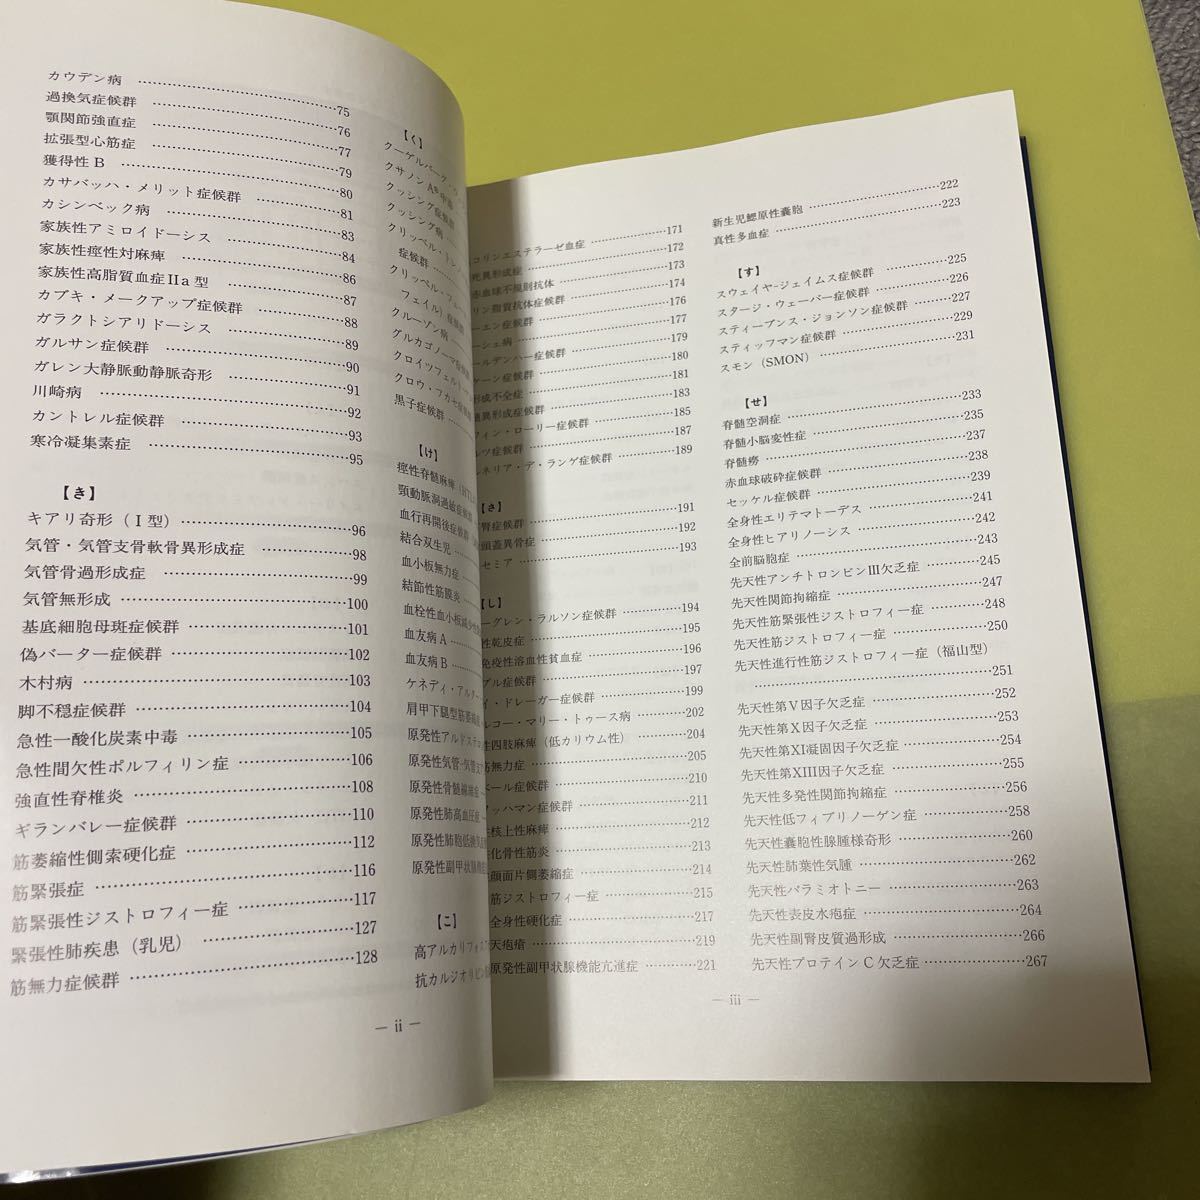 カウデン病 ……75
過換気症候群 ……76
顎関節強直症 ……77
拡張型心筋症 ……79
獲得性B ……80
カサバッハ・メリット症候群 ……81
カシンベック病 ……83
家族性アミロイドーシス ……84
家族性痙性対麻痺 ……86
家族性高脂質血症IIa型 ……87
カブキ・メークアップ症候群 ……88
ガラクトシアリドーシス ……89
ガルサン症候群 ……90
ガレン大静脈動静脈奇形 ……91
川崎病 ……92
カントレル症候群 ……93
寒冷凝集素症 ……95
【き】
キアリ奇形（I型） ……96
気管・気管支軟骨異形成症 ……98
気管骨過形成症 ……99
気管無形成 ……100
基底細胞母斑症候群 ……101
偽バーター症候群 ……102
木村病 ……103
脚不穏症候群 ……104
急性一酸化炭素中毒 ……105
急性間欠性ポルフィリン症 ……106
強直性脊椎炎 ……108
ギランバレー症候群 ……110
筋萎縮性側索硬化症 ……112
筋緊張症 ……116
筋緊張性ジストロフィー症 ……117
緊張性肺疾患（乳児） ……127
筋無力症候群 ……128
【く】
クーゲルバーグ・
クサノンA®中毒
クッシング症候群
クッシング病
クリッペル・トレノ
症候群
クリッペル・フェー
フェイル）症候群
クルーゾン病
グルカゴノーマ症候群
クロイツフェルト・
クロウ・フカセ症候群
黒子症候群
【け】
痙性脊髄麻痺（HTL
頸動脈洞過敏症候群
血行再開後症候群
結合双生児
血小板無力症
結節性筋膜炎
血栓性血小板減少性
血友病A
血友病B
ケネディ・アルター
肩甲下腿型筋萎縮
原発性アルドステロ
原発性気管・気管支
原発性骨髄線維症
原発性肺高血圧症
原発性肺胞低換気
原発性副甲状腺機能
【こ】
高アルカリフォスフ
抗カルジオリピン
— ii —
コリンエステラーゼ血症 ……171
死異形成症 ……172
赤血球不規則抗体 ……173
リン脂質抗体症候群 ……174
ーエン症候群 ……176
ーシェ病 ……177
ールデンハー症候群 ……179
ケーン症候群 ……180
形成不全症 ……181
髄異形成症候群 ……183
フィン・ローリー症候群 ……185
ルツ症候群 ……187
ルネリア・デ・ランゲ症候群 ……189
【さ】
腎症候群 ……191
頭蓋異骨症 ……192
セミア ……193
【し】
ーグレン・ラルソン症候群 ……194
性乾皮症 ……195
免疫性溶血性貧血症 ……196
ブル症候群 ……197
イ・ドレーガー症候群 ……199
ルコー・マリー・トゥース病 ……202
性四肢麻痺（低カリウム性） ……204
筋無力症 ……205
ベール症候群 ……210
ワッハマン症候群 ……211
性核上性麻痺 ……212
化骨性筋炎 ……213
顔面片側萎縮症 ……214
筋ジストロフィー症 ……215
全身性硬化症 ……217
天疱瘡 ……219
原発性副甲状腺機能亢進症 ……221
新生児鰓原性嚢胞 ……222
真性多血症 ……223
【す】
スウェイヤ-ジェイムス症候群 ……225
スタージ・ウェーバー症候群 ……226
スティーブンス・ジョンソン症候群 ……227
スティッフマン症候群 ……229
スモン（SMON） ……231
【せ】
脊髄空洞症 ……233
脊髄小脳変性症 ……235
脊髄癆 ……237
赤血球破砕症候群 ……238
セッケル症候群 ……239
全身性エリテマトーデス ……241
全身性ヒアリノーシス ……242
全前脳胞症 ……243
先天性アンチトロンビンIII欠乏症 ……245
先天性関節拘縮症 ……247
先天性筋緊張性ジストロフィー症 ……248
先天性筋ジストロフィー症 ……250
先天性進行性筋ジストロフィー症（福山型）
……251
先天性第V因子欠乏症 ……252
先天性第X因子欠乏症 ……253
先天性第XI凝固因子欠乏症 ……254
先天性第XIII因子欠乏症 ……255
先天性多発性関節拘縮症 ……256
先天性低フィブリノーゲン症 ……258
先天性嚢胞性腺腫様奇形 ……260
先天性肺葉性気腫 ……262
先天性パラミオトニー ……263
先天性表皮水疱症 ……264
先天性副腎皮質過形成 ……266
先天性プロテインC欠乏症 ……267
— iii —